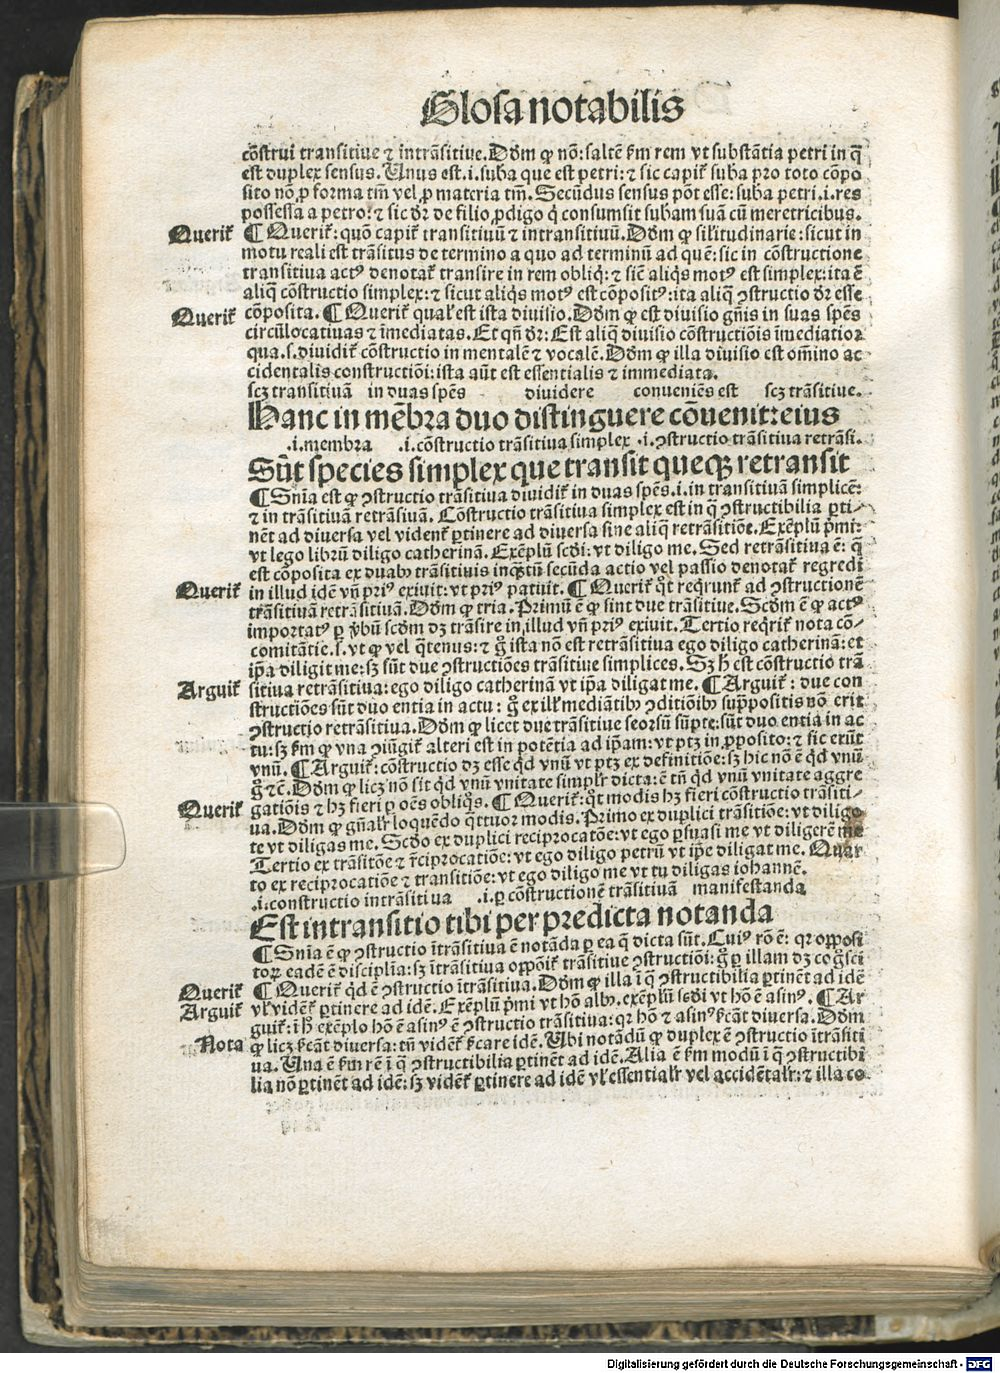 Glosa notabilis
cõstrui transitiue ⁊ intrãsitiue. Dðm ꝙ nõ: saltẽ ẜm rem vt substãtia petri in q̃
est duplex sensus. Unus est .i. suba que est petri: ⁊ sic capit᷑ suba pro toto cõpo
sito nõ ꝓ forma tm̃ vel ꝓ materia tm̃. Secũdus sensus põt esse: suba petri .i. res
possessa a petro: ⁊ sic dr̃ de filio ꝓdigo q̇ consumsit subam suã cũ meretricibus.
Querit᷑
¶ Querit᷑: quõ capit᷑ transitiuũ ⁊ intransitiuũ. Dðm ꝙ sil̃itudinarie: sicut in
motu reali est trãsitus de termino a quo ad terminũ ad quẽ: sic in cõstructione
transitiua actꝰ denotat᷑ transire in rem obliq̃: ⁊ sicẽ aliq̃s motꝰ est simplex: ita ẽ
aliq̃ cõstructio simplex: ⁊ sicut aliq̃s motꝰ est cõpositꝰ: ita aliq̃ ꝯstructio dr̃ esse
Querit᷑
cõposita. ¶ Querit᷑ qual̃ est ista diuisio. Dðm ꝙ est diuisio gñis in suas spẽs
circũlocatiuas ⁊ ĩmediatas. Et qñ dr̃: Est aliq̃ diuisio cõstructiõis ĩmediatior
qua .s. diuidit᷑ cõstructio in mentalẽ ⁊ vocalẽ. Dðm ꝙ illa diuisio est om̃ino ac
cidentalis constructiõi: ista aũt est essentialis ⁊ immediata.
scꝫ transitiuã in duas spẽs diuidere conueniẽs est scꝫ trãsitiue.
Hanc in mẽbra duo distinguere cõuenit: eius
.i. membra .i. cõstructio trãsitiua simplex .i. ꝯstructio trãsitiua retrãsi.
Sũt species simplex que transit queqꝫ retransit
¶ Sñia est ꝙ ꝯstructio trãsitiua diuidit᷑ in duas spẽs .i. in transitiuã simplicẽ:
⁊ in trãsitiuã retrãsiuã. Cõstructio trãsitiua simplex est in q̃ ꝯstructibilia ꝑti-
nẽt ad diuersa vel vident᷑ ꝑtinere ad diuersa sine aliq̃ retrãsitiõe. Exẽplũ pͥmi:
vt lego librũ diligo catherinã. Exẽplũ scði: vt diligo me. Sed retrãsitiua ẽ: q̃
est cõposita ex duabꝫ trãsitiuis inqͣꝫtũ secũda actio vel passio denotat᷑ regredi
Querit᷑
in illud idẽ vñ priꝰ exiuit: vt priꝰ patuit. ¶ Querit᷑ q̇t reqͥrunt᷑ ad ꝯstructionẽ
trãsitiuã retrãsitiuã. Dðm ꝙ tria. Primũ ẽ ꝙ sint due trãsitiue. Scðm ẽ ꝙ actꝰ
importatꝰ ꝑ ṽbũ scðm dꝫ trãsire in illud vñ priꝰ exiuit. Tertio reqͥrit᷑ nota cõ-
comitãtie .s. vt ꝙ vel qͣtenus: ⁊ g̊ ista nõ est retrãsitiua ego diligo catherinã: et
ip̃a diligit me: sꝫ sũt due ꝯstructiões trãsitiue simplices. Sꝫ h̃ est cõstructio trã
Arguit᷑
sitiua retrãsitiua: ego diligo catherinã vt ip̃a diligat me. ¶ Arguit᷑: due con
structiões sũt duo entia in actu: g̊ ex ill̃ mediãtibꝫ ꝯditiõibꝫ supp̃ositis nõ erit
ꝯstructio retrãsitiua. Dðm ꝙ licet due trãsitiue seorsũ sũpte: sũt duo entia in ac
tu: sꝫ ẜm ꝙ vna ꝯiũgit᷑ alteri est in potẽtia ad ip̃am: vt ptꝫ in ꝓposito: ⁊ sic erũt
vnũ. ¶ Arguit᷑: cõstructio dꝫ esse qͥd vnũ vt ptꝫ ex definitiõe: sꝫ hic nõ ẽ qͥd vnũ
g̊ ⁊c̃. Dðm ꝙ licꝫ nõ sit qͥd vnũ vnitate simpl̃r dicta: ẽ tñ qͥd vnũ vnitate aggre
Querit᷑
gatiõis ⁊ hꝫ fieri ꝑ oẽs obliq̃s. ¶ Querit᷑: q̇t modis hꝫ fieri cõstructio trãsiti-
ua. Dðm ꝙ gñal̃r loquẽdo qͣttuor modis. Primo ex duplici trãsitiõe: vt diligo
te vt diligas me. Scðo ex duplici reciprocatõe: vt ego ꝑsuasi me vt diligerẽ me
Tertio ex trãsitõe ⁊ r̃ciprocatiõe: vt ego diligo petrũ vt ip̃e diligat me. Quar
to ex reciprocatiõe ⁊ transitiõe: vt ego diligo me vt tu diligas iohannẽ.
.i. constructio intrãsitiua .i. ꝑ cõstructionẽ trãsitiuã manifestanda
Est intransitio tibi per predicta notanda
¶ Sñia ẽ ꝙ ꝯstructio ĩtrãsitiua ẽ notãda ꝑ ea q̃ dicta sũt. Cuiꝰ rõ ẽ: qr oppósi
torꝝ eadẽ ẽ disciplĩa: sꝫ ĩtrãsitiua oppõit᷑ trãsitiue ꝯstructiõi: g̊ ꝑ illam dꝫ cog̊sci
Querit᷑
¶ Querit᷑ qͥd ẽ ꝯstructio ĩtrãsitiua. Dðm ꝙ illa ĩ q̃ ꝯstructibilia ꝑtinẽt ad idẽ
Arguit᷑
vl̃ vident᷑ ꝑtinere ad idẽ. Exẽplũ pͥmi vt hõ albꝰ. exẽplũ scði vt hõ ẽ asinꝰ. ¶ Ar
guit᷑: ĩ h̃ exẽplo hõ ẽ asinꝰ ẽ ꝯstructio trãsitiua: qr hõ ⁊ asinꝰ ẜcãt diuersa. Dðm
Nota
ꝙ licꝫ ẜcãt diuersa: tñ vident᷑ ẜcare idẽ. Ubi notãdũ ꝙ duplex ẽ ꝯstructio ĩtrãsiti
ua. Una ẽ ẜm rẽ ĩ q̃ ꝯstructibilia ꝑtinẽt ad idẽ. Alia ẽ ẜm modũ ĩ q̃ ꝯstructibi
lia nõ ꝑtinẽt ad idẽ: sꝫ vident᷑ ꝑtinere ad idẽ vl̃ essential̃r vel accidẽtal̃r: ⁊ illa co
Digitalisierung gefördert durch die Deutsche Forschungsgemeinschaft - DFG